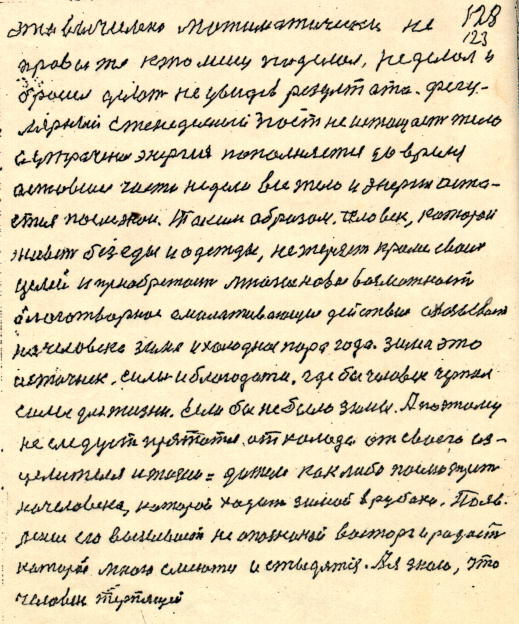 128
это вычислено мотиматически не
123
правы те кто лиш поделал, неделал и
бросил делат неувидев резултата. Регу-
лярный еженеделный пост неистощает тело
а утрачена энергия пополняется во время
астовшие части недели все тело и энергия оста-
ется полезной. Итаким образом. человек, которой
живет без еды и одежды, нетеряет кроме своих
целей и приобретает много новые возможност
благотворное омолаживающие действие оказывает
начеловека зима ихолодная пора года. Зима это
источник. силы и благодати. где бы человек черпал
силы дляжизни. Если бы небыло зимы. А поэтому
не следует прятатся. от холода от своего ис-
целителя
начеловека, которой ходит зимой в рубахе. Появ-
ление его вызывает не восторг и радост
которой много смеются и стыдятся. А я знаю, что
человек терпящей